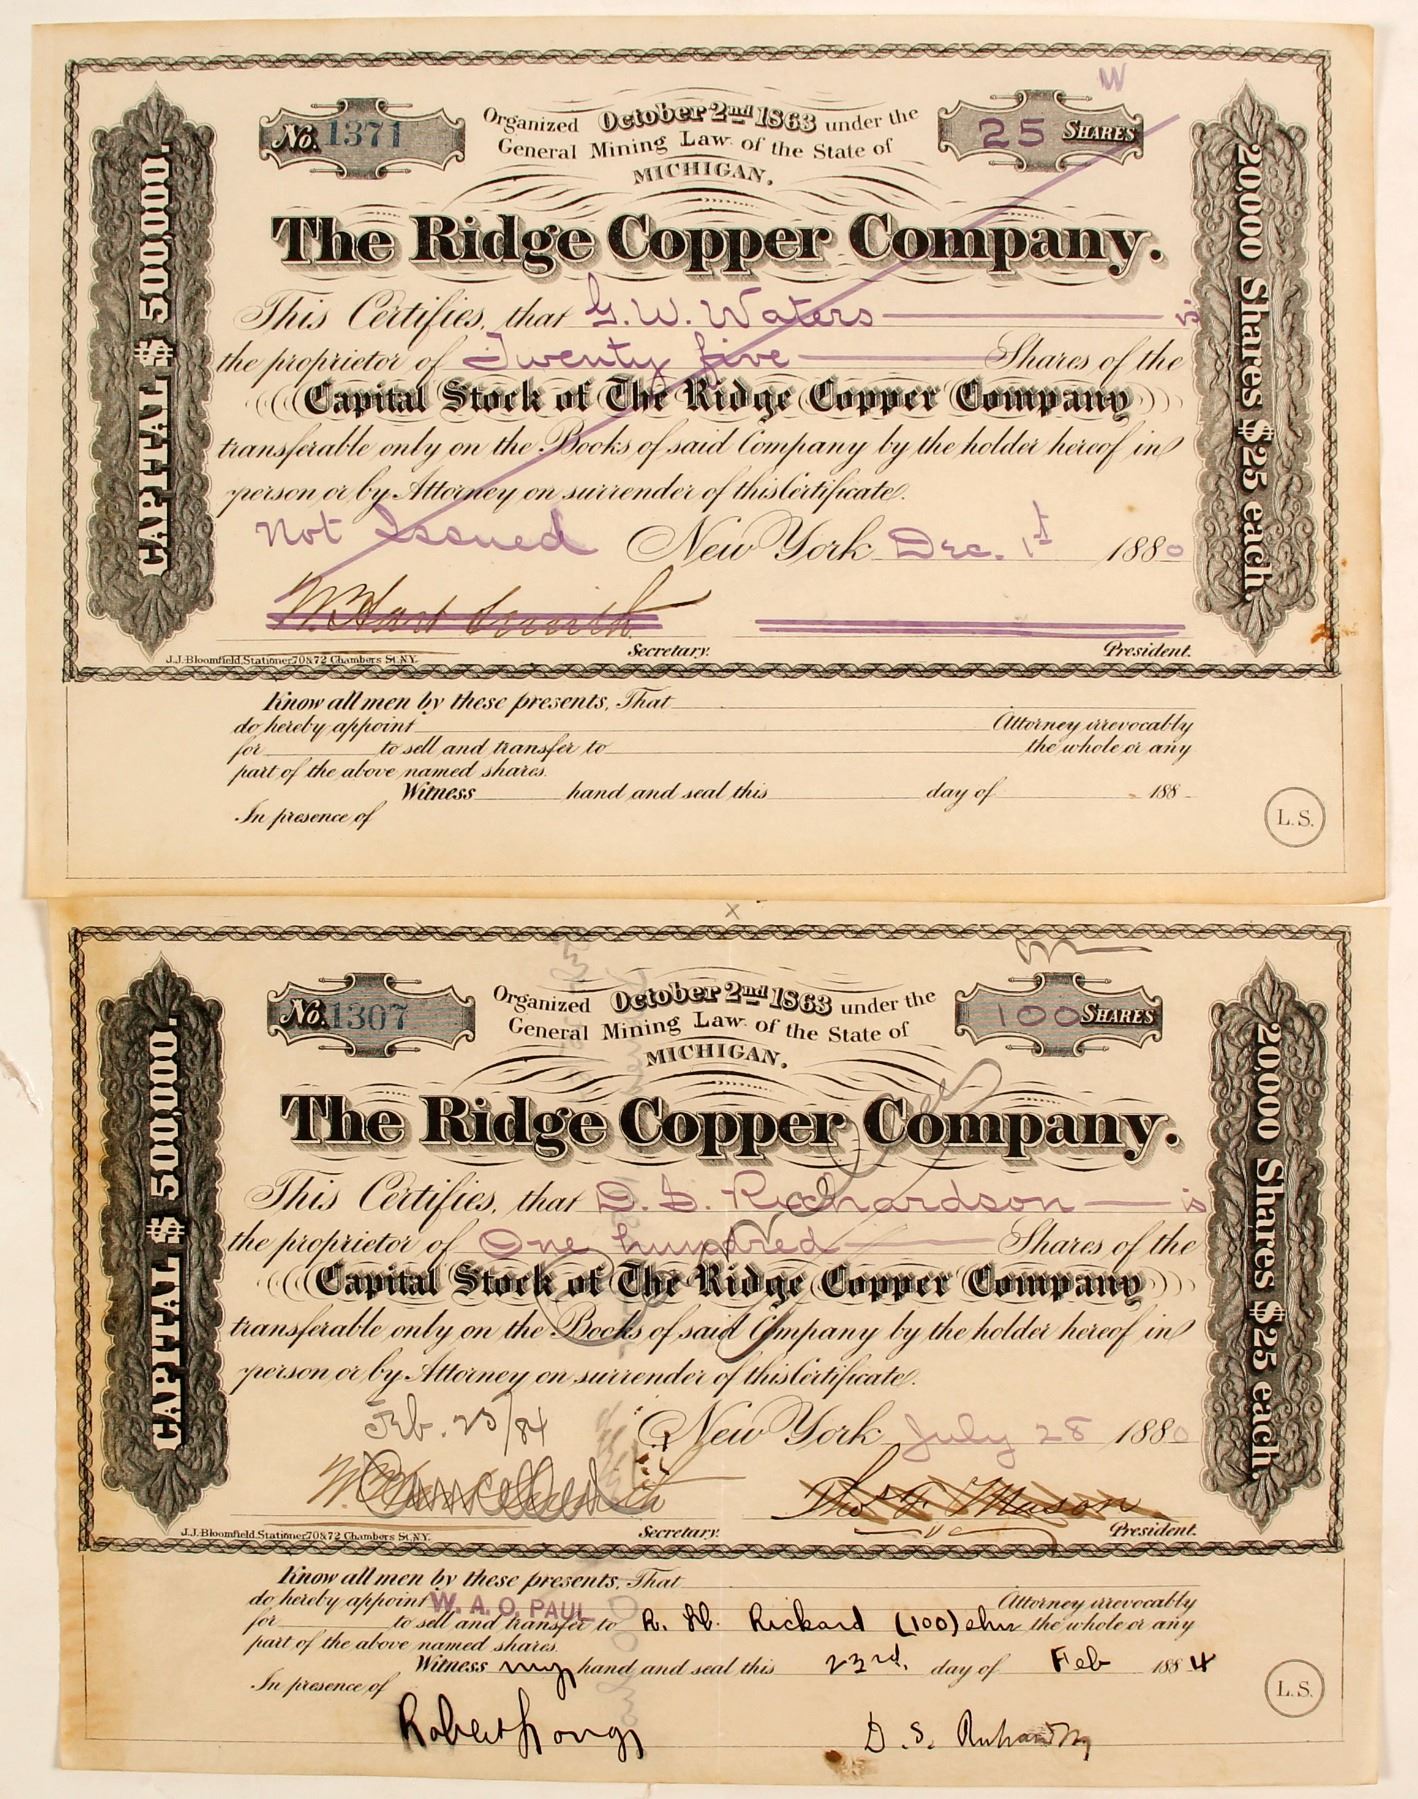 W
No. 1371
Organized October 2nd 1863 under the
General Mining Law of the State of
MICHIGAN,
25 SHARES
The Ridge Copper Company.
CAPITAL $ 500,000.
20,000 Shares $25 each.
This Certifies, that G. W. Waters is
the proprietor of Twenty five Shares of the
Capital Stock of The Ridge Copper Company
transferable only on the Books of said Company by the holder hereof in
person or by Attorney on surrender of this Certificate.
Not Issued New York Dec. 1st 1880
W. Hart Smith
Secretary. President.
J.J. Bloomfield, Stationer, 70 & 72 Chambers St. N.Y.
Know all men by these presents, That
do hereby appoint Attorney irrevocably
for to sell and transfer to the whole or any
part of the above named shares.
Witness hand and seal this day of 188
In presence of
L.S.
x
No. 1307
Organized October 2nd 1863 under the
General Mining Law of the State of
MICHIGAN,
100 SHARES
The Ridge Copper Company.
CAPITAL $ 500,000.
20,000 Shares $25 each.
This Certifies, that D. S. Richardson is
the proprietor of One hundred Shares of the
Capital Stock of The Ridge Copper Company
transferable only on the Books of said Company by the holder hereof in
person or by Attorney on surrender of this Certificate.
Cancelled
Feb. 25/84 New York July 28 1880
W. Hart Smith Thos. F. Mason
Cancelled
Secretary. President.
J.J. Bloomfield, Stationer, 70 & 72 Chambers St. N.Y.
Know all men by these presents, That
do hereby appoint W. A. O. PAUL Attorney irrevocably
for to sell and transfer to R. H. Rickard (100) shs the whole or any
part of the above named shares.
Witness my hand and seal this 23rd. day of Feb 1884
In presence of
L.S.
Robert Long D. S. Richardson